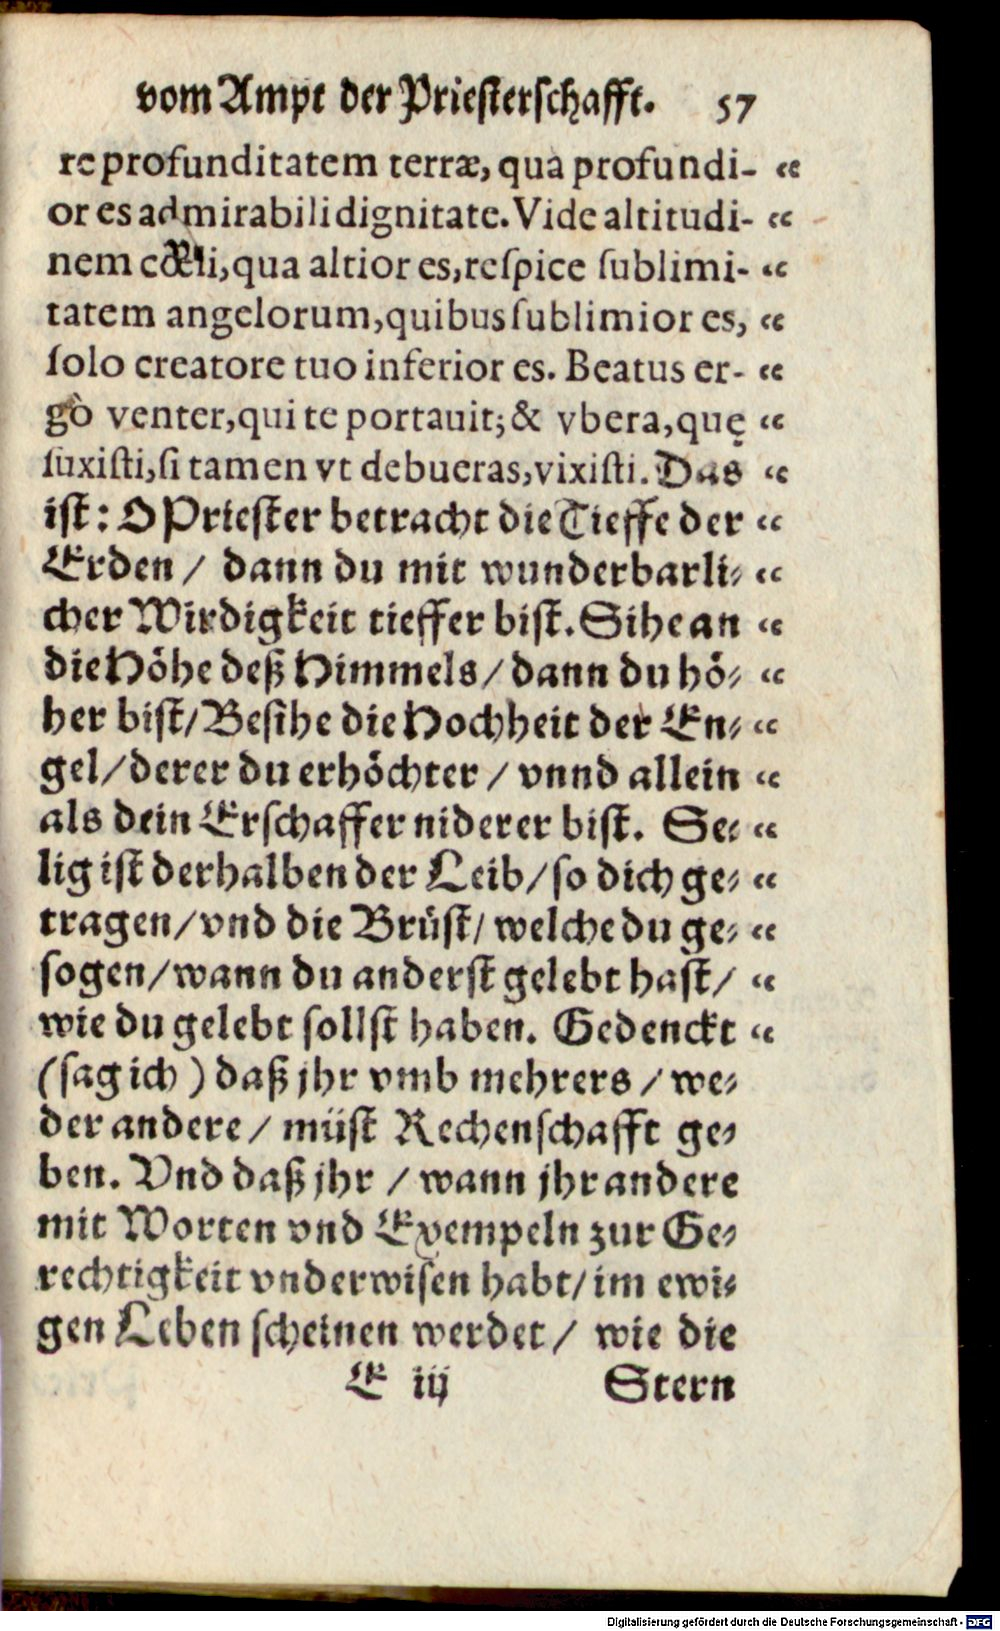 vom Ampt der Priesterschafft. 57
re profunditatem terræ, qua profundi- “
or es admirabili dignitate. Vide altitudi- “
nem cœli, qua altior es, respice sublimi- “
tatem angelorum, quibus sublimior es, “
solo creatore tuo inferior es. Beatus er- “
gò venter, qui te portauit; & vbera, quę “
suxisti, si tamen vt debueras, vixisti. Das “
ist: O Priester betracht die Tieffe der “
Erden / dann du mit wunderbarli- “
cher Wirdigkeit tieffer bist. Sihe an “
die Höhe deß Himmels / dann du hö- “
her bist / Besihe die Hochheit der En- “
gel / derer du erhöchter / vnnd allein “
als dein Erschaffer niderer bist. Se- “
lig ist derhalben der Leib / so dich ge- “
tragen / vnd die Brüst / welche du ge- “
sogen / wann du anderst gelebt hast / “
wie du gelebt sollst haben. Gedenckt “
(sag ich) daß jhr vmb mehrers / we-
der andere / müst Rechenschafft ge-
ben. Vnd daß jhr / wann jhr andere
mit Worten vnd Exempeln zur Ge-
rechtigkeit vnderwisen habt / im ewi-
gen Leben scheinen werdet / wie die
E iij Stern
Digitalisierung gefördert durch die Deutsche Forschungsgemeinschaft - DFG